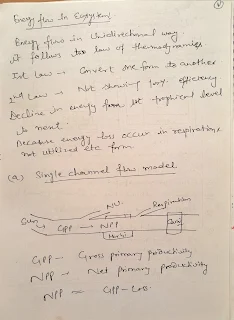 Energy flow In Ecosystem
Energy flows in Unidirectional way
it follows two law of thermodynamics
Ist Law → Convert one form to another
2nd Law → Not showing 100% efficiency
Decline in energy from 1st trophical level
to next.
Because energy loss occur in respiration,
not utilized etc form.
(a) Single channel flow model
N.U. Respiration
Sun GPP → NPP
Herbi Carni
GPP - Gross primary productivity
NPP - Net primary productivity
NPP = GPP - Loss.